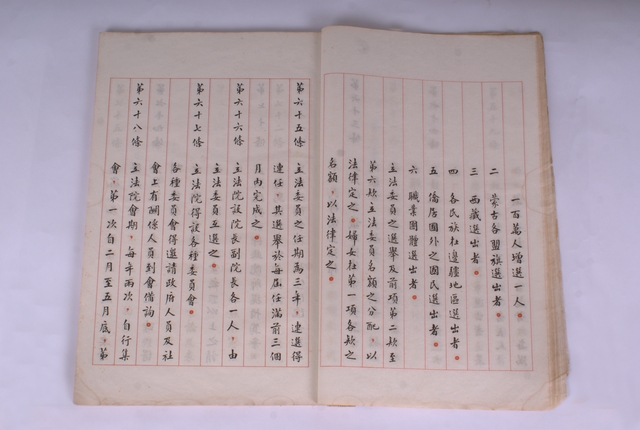 一百萬人增選一人。
二　蒙古各盟旗選出者。
三　西藏選出者。
四　各民族在邊疆地區選出者。
五　僑居國外之國民選出者。
六　職業團體選出者。
立法委員之選舉及前項第二款至
第六款立法委員名額之分配，以
法律定之。婦女在第一項各款之
名額，以法律定之。
第六十五條　立法委員之任期為三年，連選得
連任，其選舉於每屆任滿前三個
月內完成之。
第六十六條　立法院設院長副院長各一人，由
立法委員互選之。
第六十七條　立法院得設各種委員會。
各種委員會得邀請政府人員及社
會上有關係人員到會備詢。
第六十八條　立法院會期，每年兩次，自行集
會，第一次自二月至五月底，第